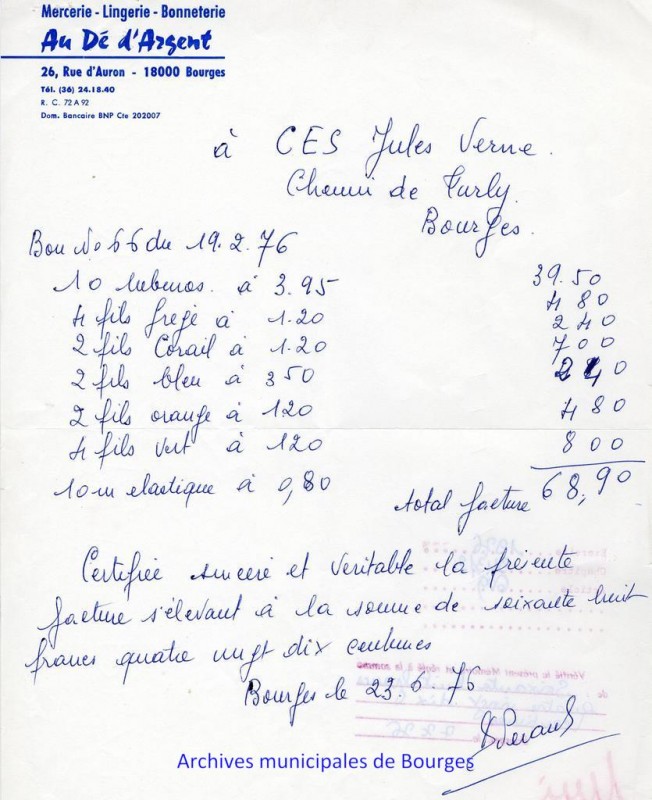 Mercerie - Lingerie - Bonneterie
Au Dé d'Argent
26, Rue d'Auron - 18000 Bourges
Tél. (36) 24.18.40
R. C. 72 A 92
Dom. Bancaire BNP Cte 202007
à CES Jules Verne.
Chemin de Turly.
Bourges.
Bon No 66 du 19.2.76
10 rubans à 3.95 39.50
4 fils grège à 1.20 4 80
2 fils Corail à 1.20 2 40
2 fils bleu à 3 50 7 00
2 fils orange à 120 2 40
4 fils vert à 120 4 80
10 m elastique à 0,80 8 00
total facture 68,90
Certifiée sincère et veritable la présente
facture s'élevant à la somme de soixante huit
francs quatre vingt dix centimes
Bourges le 23.6.76
Archives municipales de Bourges